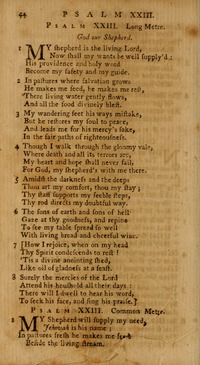 44 PSALM XXIII.
PSALM XXIII. Long Metre.
God our Shepherd.
1 MY shepherd is the living Lord,
Now shall my wants be well supply'd:
His providence and holy word
Become my safety and my guide.
2 In pastures where salvation grows
He makes me feed, he makes me rest,
There living water gently flows,
And all the food divinely blest.
3 My wandering feet his ways mistake,
But he restores my soul to peace,
And leads me for his mercy's sake,
In the fair paths of righteousness.
4 Though I walk through the gloomy vale,
Where death and all its terrors are,
My heart and hope shall never fail,
For God, my shepherd's with me there.
5 Amidst the darkness and the deeps
Thou art my comfort, thou my stay;
Thy staff supports my feeble steps,
Thy rod directs my doubtful way.
6 The sons of earth and sons of hell
Gaze at thy goodness, and repine
To see my table spread so well
With living bread and cheerful wine.
7 [How I rejoice, when on my head
Thy Spirit condescends to rest!
'Tis a divine anointing shed,
Like oil of gladness at a feast.
8 Surely the mercies of the Lord
Attend his houshold all their days:
There will I dwell to hear his word,
To seek his face, and sing his praise.]
PSALM XXIII. Common Metre.
1 MY Shepherd will supply my need,
Jehovah is his name;
In pastures fresh he makes me feed
Beside the living stream.